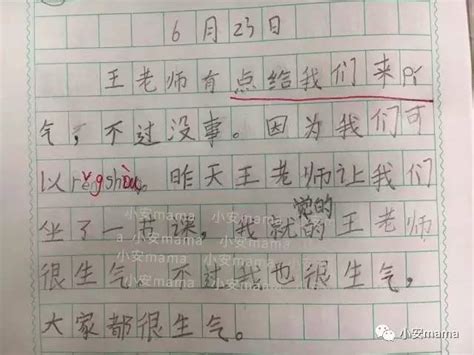 6月23日
王老师有点给我们来pí
气，不过没事。因为我们可
以rěngshòu。昨天王老师让我们
小安mama
觉的
坐了一节课，我就的王老师
a 小安mama
小安mama
很生气，不过我也很生气，
小安mama
大家都很生气。
小安mama